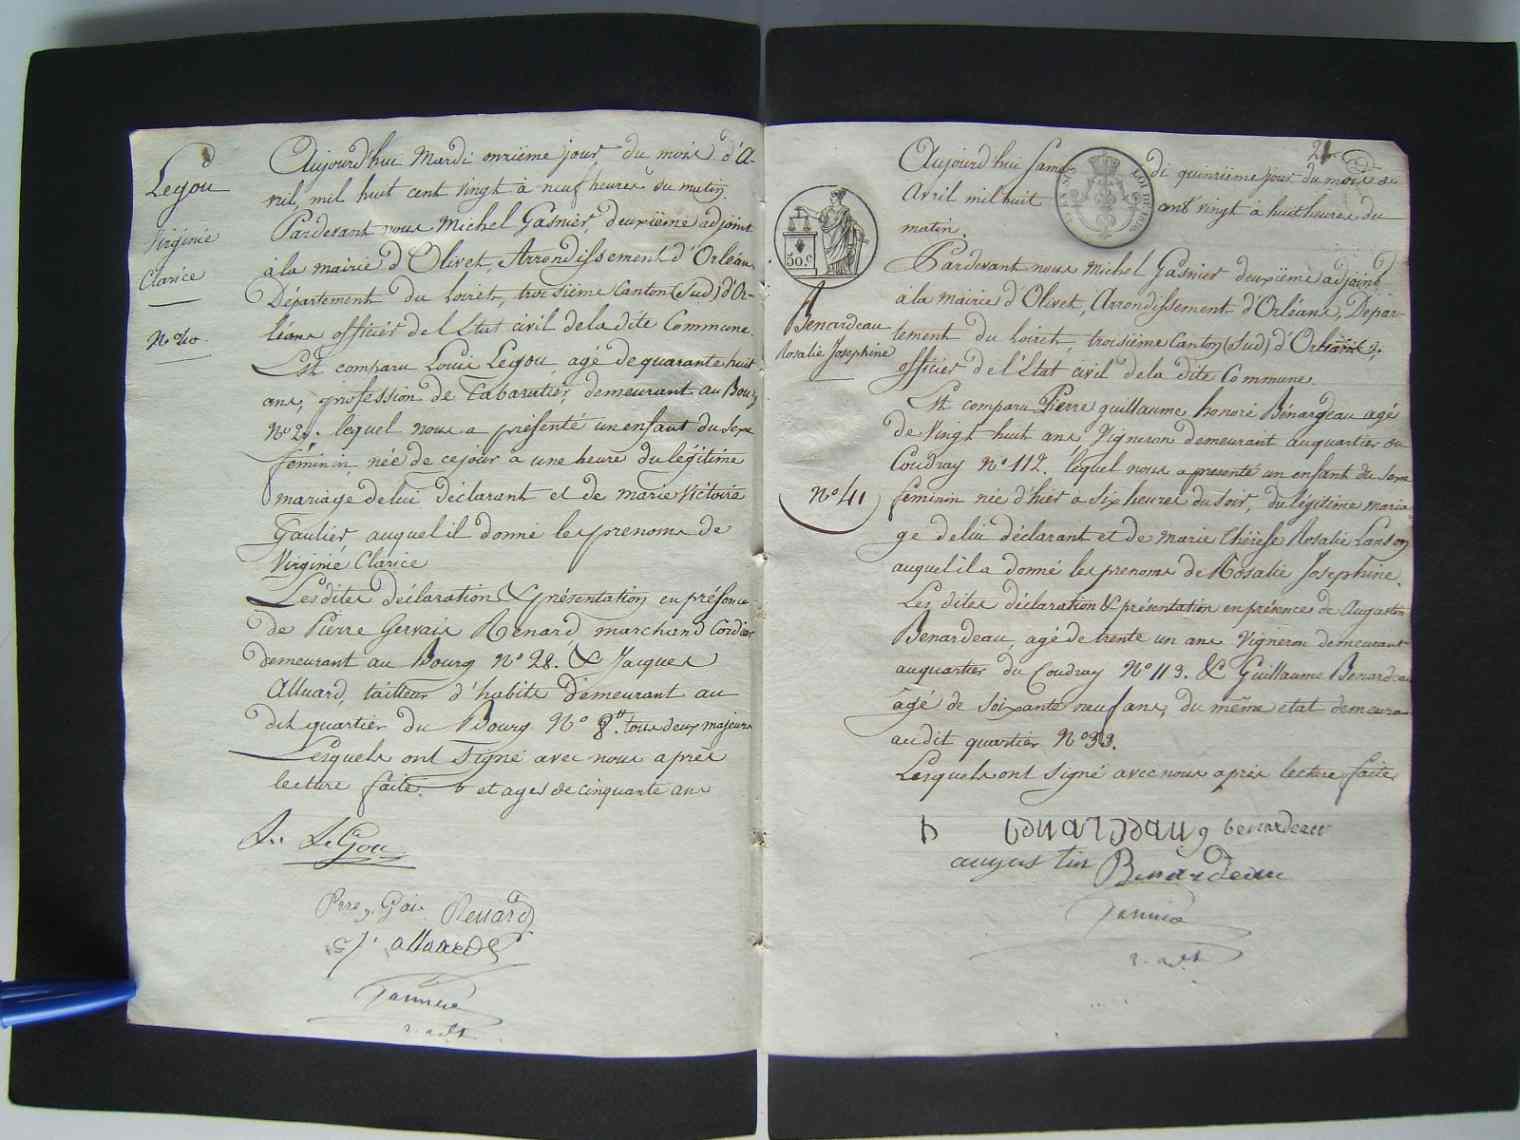 Legou
Virginie
Clarice
N.º 40.
Aujourd'hui Mardi onzième jour du mois d'A-
vril, mil huit cent vingt à neuf heures du matin.
Pardevant nous Michel Gasnier, deuxième adjoint
à la mairie d'Olivet, Arrondissement d'Orléans,
Département du Loiret, troisième Canton (Sud) d'Or-
léans officier de l'Etat civil de la dite Commune.
Est comparu Louis Legou, agé de quarante huit
ans, profession de Cabaretier, demeurant au Bourg
Nº 2. lequel nous a présenté un enfant du sexe
féminin née de ce jour à une heure du légitime
mariage de lui déclarant et de marie Victoire
Gaulier, auquel il donne les prenoms de
Virginie Clarice
Les dites déclaration & présentation en présence
de Pierre Gervais Renard marchand Cordier
demeurant au Bourg Nº 28. & Jacques
Alluard, tailleur d'habits demeurant au
dit quartier du Bourg Nº 8. tous deux majeurs
Lesquels ont signé avec nous après
lecture faite. et agés de cinquante ans
Ls LeGou
Pre. Gais Renard
J. alluard
Gasnier
2. adt
21
Aujourd'hui Same di quinzième jour du mois de
Avril mil huit cent vingt à huit heures du
matin.
50.c
Pardevant nous Michel Gasnier deuxième adjoint
à la mairie d'Olivet, Arrondissement d'Orléans, Dépar-
tement du Loiret, troisième Canton (Sud) d'Orléans
officier de l'Etat civil de la dite Commune.
Benardeau
Rosalie Josephine
Nº 41
Est comparu Pierre guillaume honoré Bénardeau agé
de Vingt huit ans, Vigneron demeurant au quartier du
Coudray Nº 112. lequel nous a presenté un enfant du sexe
feminin née d'hier à six heures du soir, du légitime maria-
ge de lui déclarant et de marie thérèse Rosalie Lanson
auquel il a donné les prenoms de Rosalie Josephine.
Les dites déclaration & présentation en présence de Augustin
Benardeau, agé de trente un ans Vigneron demeurant
au quartier du Coudray Nº 113. & Guillaume Benardeau
âgé de Soixante neuf ans, du même etat demeurant
au dit quartier Nº 33.
Lesquels ont signé avec nous après lecture faite
benardeau g benardeau
augustin Benardeau
Gasnier
2. adt